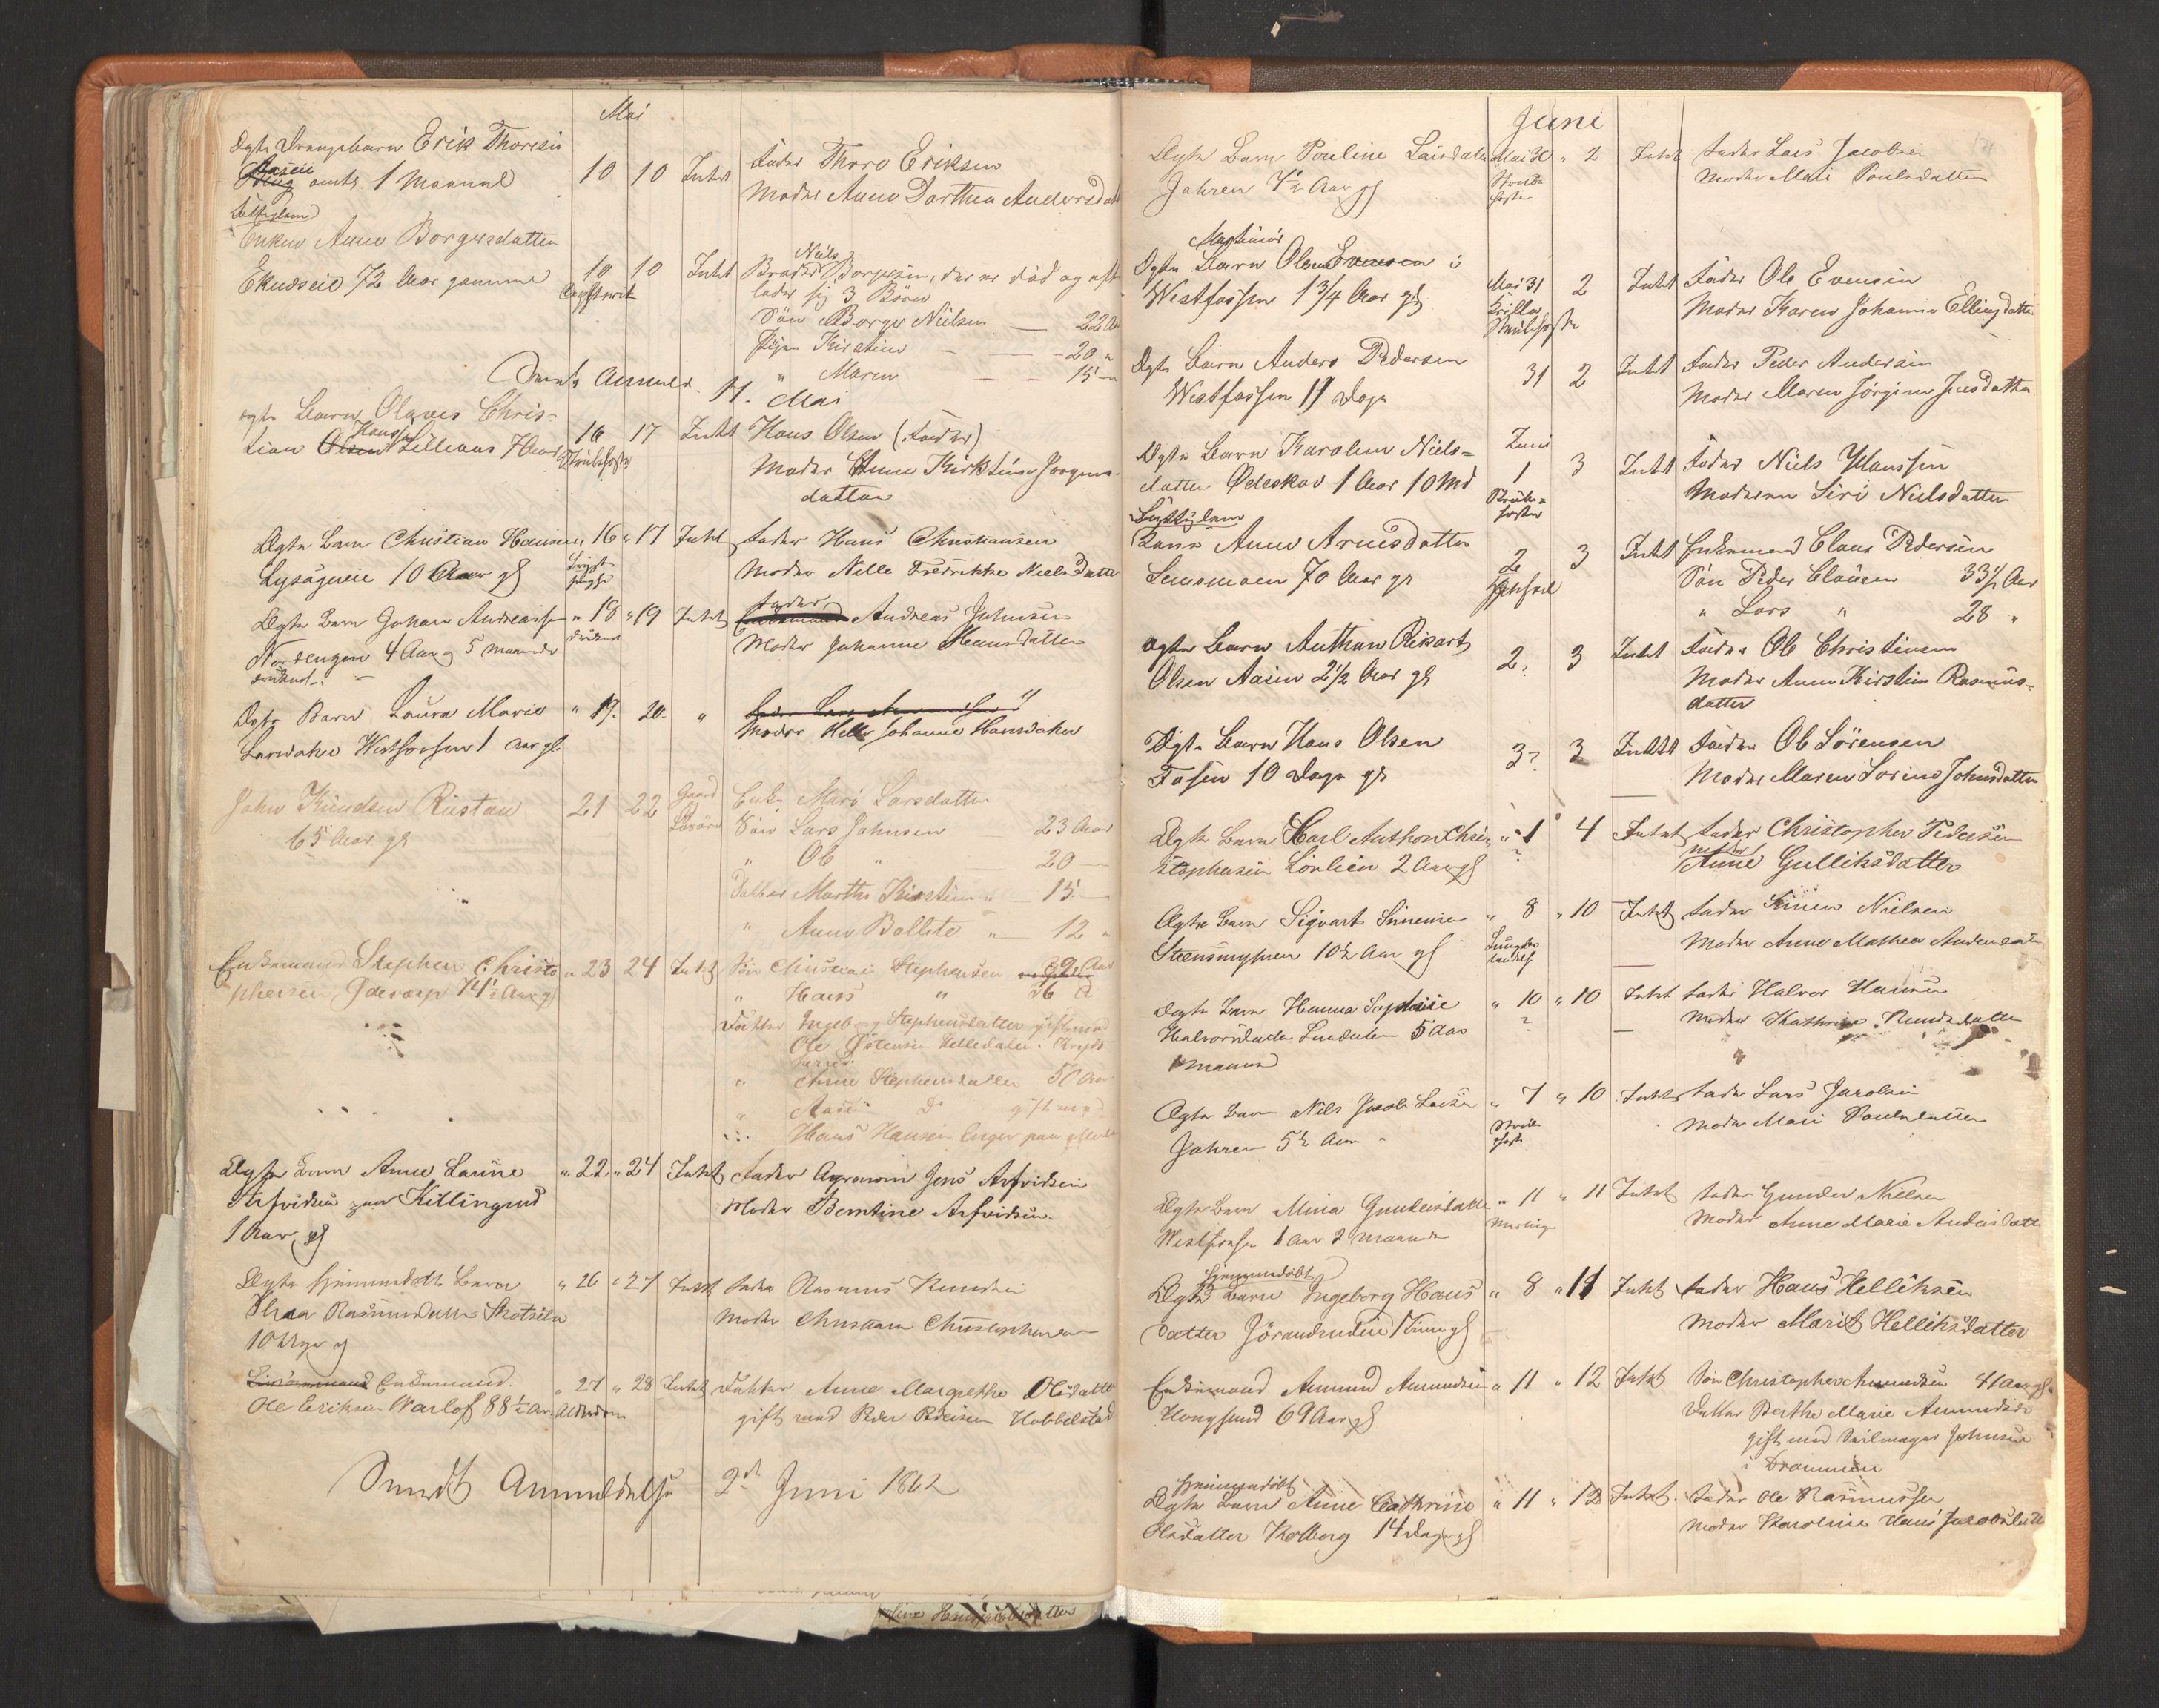 Mai
Ægte Drengebarn Erik Thoresen
1 Maaned
10 10 Intet
Fader Thore Eriksen
Moder Anne Dorthea Andersdat
Enken Anne Borgersdatter
Ekudseie 72 Aar gammel
10 10 Intet
Niels
Broder Borgersen, der er død og eft
lader sig 3 Børn
Søn Borger Nielsen — 22 Aar
Pigen Kirstine — 20 "
" Maren — 15 —
Sendt Anmeld. 11. Mai
Ægte Barn Olaves Chris-
Hansen
tian Lilleaas 7 Aar
16 17 Intet
Hans Olsen (Fader)
Moder Anne Kirstine Jørgens-
datter
Ægte Barn Christian Hansen
10 Aar gl
" 16 " 17 Intet
Fader Hans Christiansen
Moder Nelle Fredrikke Nielsdatter
Ægte Barn Johan Andreassen
Nordengen 4 Aar og 5 Maaneder
druknet
" 18 " 19 Intet
druknet
Fader Andreas Johnsen
Moder Johanne Hansdatter
Ægte Barn Laura Marie
Larsdatter Westfossen 1 Aar gl.
" 19. 20. "
Moder Helle Johanne Hansdatter
John Knudsen Rustan
65 Aar gl
21 22 Gaard
Enke Mari Larsdatter
Søn Lars Johnsen — 23 Aar
" Ole " 20 —
Datter Marthe Kirstine " 15 —
" Anne Bollete " — 12 "
Enkemand Stephen Christo
phersen 74½ Aar gl
" 23 24 Intet
Søn Christian Stephensen 39 Aar
" Hans " 36
Datter Ingeborg Stephensdatter gift med
Ole Østensen
" Anne Stephensdatter 50 Aar
" gift med
" Hans Hansen Enger
Ægte Barn Anne Laurine
Arfvidsen paa Killingrud
1 Aar gl
" 22 " 24 Intet
Fader Agronom Jens Arfvidsen
Moder Berntine Arfvidsen.
Ægte hjemmedøbt Barn
Thea Rasmusdatter
10 Uger gl
" 26 " 27 Intet
Fader Rasmus Knudsen
Moder Christiane Christophersdatter
Enkemand.
Ole Eriksen Warlof 88½ Aar.
" 27 " 28 Intet
Alderdom
Datter Anne Margrethe Olsdatter
gift med Peder Pedersen Hobbelstad
Sendt Anmeldelse 2d Juni 1862
Juni
Ægte Barn Pauline Larsdatter
Jahren 7½ Aar gl
Mai 30 " 2 Intet
Strube
hoste
Fader Lars Jacobsen
Moder Mari Poulsdatter
Martinius
Ægte Barn Olsen i
Westfossen 1 3/4 Aar gl
Mai 31 2 Intet
Fader Ole Evensen
Moder Karen Johanne Ellingsdatter
Ægte Barn Anders Pedersen
Westfossen 11 Dage
31 2 Intet
Fader Peder Andersen
Moder Maren Jørgine Jensdatter
Juni
Ægte Barn Karoline Niels=
datter Ødeskov 1 Aar 10 Md
1 3 Intet
Strube=
hoste
Fader Niels Hanssen
Moderen Siri Nielsdatter
Kone Anne Arnesdatter
Lensmoen 70 Aar gl
2 3 Intet
Enkemand Claus Pedersen
Søn Peder Clausen 33½ Aar
" Lars " 28 "
Ægte Barn Anthon Rikart
Olsen Aasen 2½ Aar gl
2? 3 Intet
Fader Ole Christensen
Moder Anne Kirstine Rasmus=
datter
Ægte Barn Hans Olsen
Fosen 10 Dage gl
3? 3 Intet
Fader Ole Sørensen
Moder Maren Sorine Johnsdatter
Ægte Barn Karl Anthon Chri
stophersen Lønlien 2 Aar gl
" 1 4 Intet
?
Fader Christopher Pedersen
Moder
Anne Gulliksdatter
Ægte Barn Sigvart Simensen
Steensmyhren 10½ Aar gl
" 8 " 10 Intet
Fader Simen Nielsen
Moder Anne Mathea Andersdatter
Ægte Barn Hanna Sophie
Halvorsdatter 5 Aar
1 Maaned
" 10 " 10 Intet
?
Fader Halvor Hansen
Moder Kathrine Knudsdatter
Ægte Barn Nils Jacob Larsen
Jahren 5½ Aar
" 7 " 10 Intet
Strube
hoste
Fader Lars Jacobsen
Moder Mari Poulsdatter
Ægte Barn Mina Gundersdatter
Westfossen 1 Aar 2 Maaneder
" 11 " 11 Intet
Fader Gunder Nielsen
Moder Anne Marie Andersdatter
hjemmedøbt
Ægte Barn Ingeborg Hans
datter 1 Time gl
" 8 " 11 Intet
Fader Hans Helliksen
Moder Marit Helliksdatter
Enkemand Amund Amundsen
Hougsund 69 Aar gl
" 11 " 12 Intet
Søn Christopher Amundsen 41 Aar gl.
Datter Berthe Marie Amundsdr
gift med Seilmager Johnsen
i Drammen
hjemmedøbt
Ægte Barn Anne Cathrine
Olsdatter Kolberg 14 Dage gl
" 11 " 12 Intet.
Fader Ole Rasmussen
Moder Karoline Hans Jacobsdatter